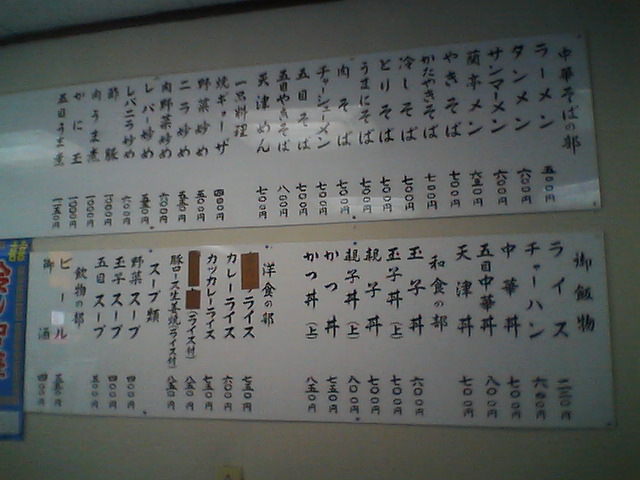 中華そばの部
ラーメン 五〇〇円
タンメン 六〇〇円
サンマーメン 六〇〇円
蘭亭メン 六五〇円
やきそば 七〇〇円
かたやきそば 七〇〇円
冷しそば 七〇〇円
とりそば 七〇〇円
うまにそば 七〇〇円
肉そば 七〇〇円
チャーシューメン 七〇〇円
五目そば 七〇〇円
五目やきそば 八〇〇円
天津めん 七〇〇円
一品料理
焼ギョーザ 四〇〇円
野菜炒め 五〇〇円
ニラ炒め 五五〇円
肉野菜炒め 六〇〇円
レバー炒め 五五〇円
レバニラ炒め 六〇〇円
酢豚 一〇〇〇円
肉うま煮 一〇〇〇円
かに玉 一〇〇〇円
五目うま煮
御飯物
ライス 二〇〇円
チャーハン 六〇〇円
中華丼 七〇〇円
五目中華丼 八〇〇円
天津丼 七〇〇円
和食の部
玉子丼 六〇〇円
玉子丼(上) 七〇〇円
親子丼 七〇〇円
親子丼(上) 八〇〇円
かつ丼 七五〇円
かつ丼(上) 八五〇円
洋食の部
ライス 七五〇円
カレーライス 六〇〇円
カツカレーライス 七五〇円
(ライス付) 八五〇円
豚ロース生姜焼(ライス付) 八五〇円
スープ類
野菜スープ 四〇〇円
玉子スープ 四〇〇円
五目スープ 五〇〇円
飲物の部
ビール 五五〇円
御酒 四〇〇円